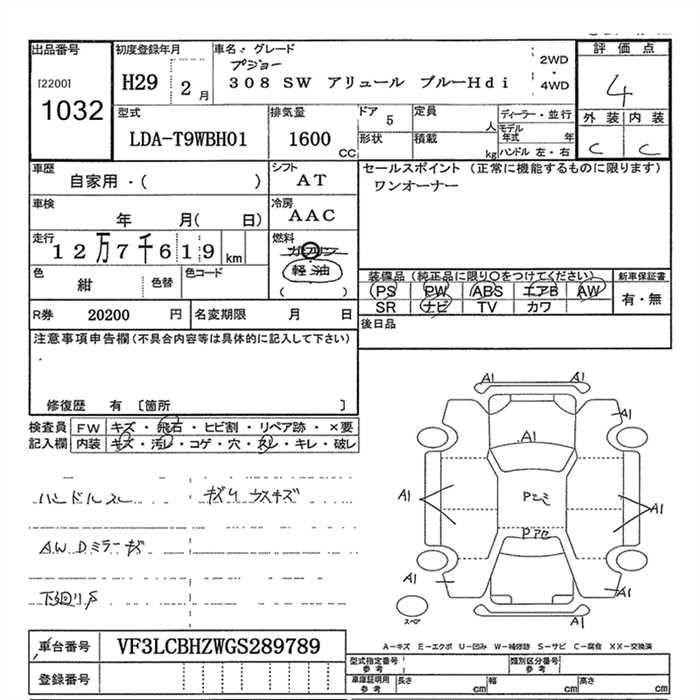 出品番号 初度登録年月 車名・グレード 評価点
[2200] H29 2月 プジョー 2WD 4
1032 308 SW アリュール ブルーHdi ・
4WD
型式 排気量 ドア 5 定員 人 ディーラー・並行 外装 内装
LDA-T9WBH01 1600 CC 形状 積載 kg モデル年式 年 C C
ハンドル 左・右
車歴 シフト セールスポイント (正常に機能するものに限ります)
自家用・( ) AT ワンオーナー
車検 冷房
年 月( 日) AAC
走行 燃料
12万7千619 km ガソリン
色 紺 色替 色コード 軽油
( )
装備品 (純正品に限り○をつけてください) 新車保証書
PS PW ABS エアB AW 有・無
SR ナビ TV カワ
R券 20200 円 名変期限 月 日 後日品
注意事項申告欄 (不具合内容等は具体的に記入して下さい)
修復歴 有 [箇所 ]
検査員 FW キズ・飛石・ヒビ割・リペア跡・×要
記入欄 内装 キズ・汚レ・コゲ・穴・スレ・キレ・破レ
A1 A1
A1
A1
A1 Pスミ A1
Pアセ
A1 A1
スペア
ハンドルスレ キズ凹 ウスキズ
A.W Dミラーキズ
下廻りサ
車台番号 VF3LCBHZWGS289789
A-キズ E-エクボ U-凹み W-補修跡 S-サビ C-腐食 XX-交換済
型式指定番号 参考 類別区分番号 参考
登録番号 車庫証明用 参考 長さ cm 幅 cm 高さ cm